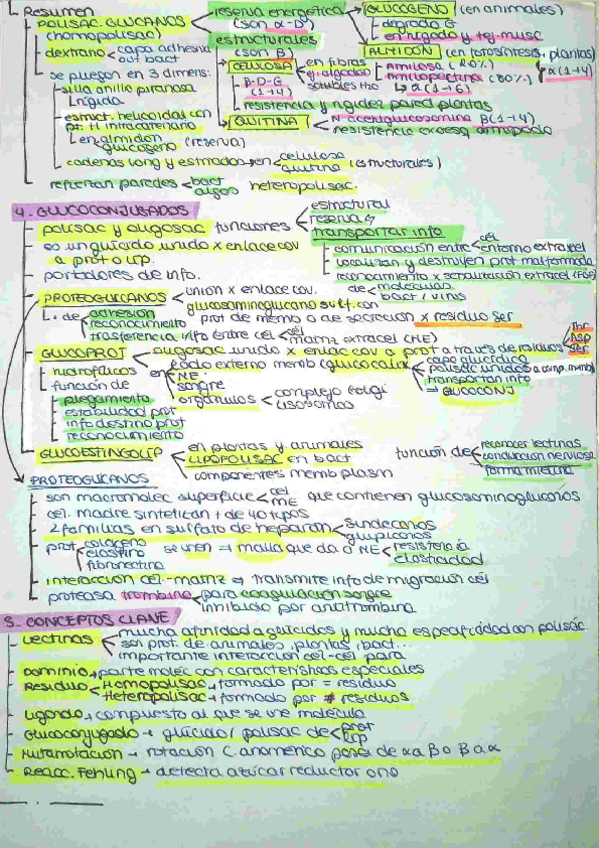 Resumen
POLISAC. GLUCANOS
(homopolisac)
reserva energética
(son α-D)
GLUCÓGENO (en animales)
degrada G
en hígado y tej. musc
estructurales
(son β)
ALMIDÓN (en fotosíntesis, plantas)
Amilosa (20%)
Amilopectina (80%)
α(1→4)
α(1→6)
CELULOSA
en fibras
ej. algodón
β-D-G
(1→4)
resistencia y rigidez pared plantas
QUITINA
N acetilglucosamina β(1→4)
resistencia exoesq artrópodo
dextrano
capa adhesiva
out bact
se pliegan en 3 dimens:
silla anillo piranosa
rígida
estruct. helicoidal con
pt H intracatenario
en almidón
glucógeno (reserva)
cadenas long y estiradas en
celulosa
quitina
(estructurales)
refuerzan paredes
bact
algas
heteropolisac.
4. GLUCOCONJUGADOS
polisac y oligosac funciones
estructural
reserva
transportar info
comunicación entre
cél
entorno extracel
localizan y destruyen prot malformada
reconocimiento x señalización extracel
de
moléculas
bact / virus
so un glúcido unido x enlace cov
a prot o lip.
portadores de info.
PROTEOGLICANOS
unión x enlace cov.
glucosaminoglucano sulf. con
prot de memb o de secreción x residuo ser
de
adhesión
reconocimiento
trasferencia info entre cél
cél
matriz extracel (ME)
GLUCOPROT
oligosac unido x enlac cov a prot a través de residuos
Thr
Asp
Ser
lado externo memb (glucocalix)
capa glucídica
polisac unidos a comp. memb
transportan info
⇒ GLUCOCONJ
hidrofílicos en
ME
sangre
orgánulos
complejo Golgi
lisosomas
función de
plegamiento
estabilidad prot
info destino prot
reconocimiento
GLUCOESFINGOLIP
en plantas y animales
LIPOPOLISAC en bact
componentes memb plasm
función de
reconocer lectinas
conducción nerviosa
forma mielina
PROTEOGLICANOS
son macromolec superficie
cel
ME
que contienen glucosaminoglucanos
cél. madre sintetizan + de 40 tipos
2 familias en sulfato de heparán
sindecanos
glupicanos
prot
colágeno
elastina
fibronectina
se unen ⇒ malla que da a ME
resistencia
elasticidad
interacción cél.-matriz ⇒ transmite info de migración cél
proteasa trombina
para coagulación sangre
inhibida por antitrombina
5. CONCEPTOS CLAVE
Lectinas
mucha afinidad a glúcidos y mucha especificidad con polisac.
son prot. de animales, plantas, bact...
importante interacción cél-cél para
Dominio → parte molec con características especiales
Residuo
Homopolisac → formado por = residuo
Heteropolisac → formado por ≠ residuos
Ligando → compuesto al que se une molécula
Glucoconjugado → glúcido / polisac de
prot
lip
Mutarrotación → rotación C. anomérico pasa de α a β o β a α
Reacc. Fehling → detecta azúcar reductor o no